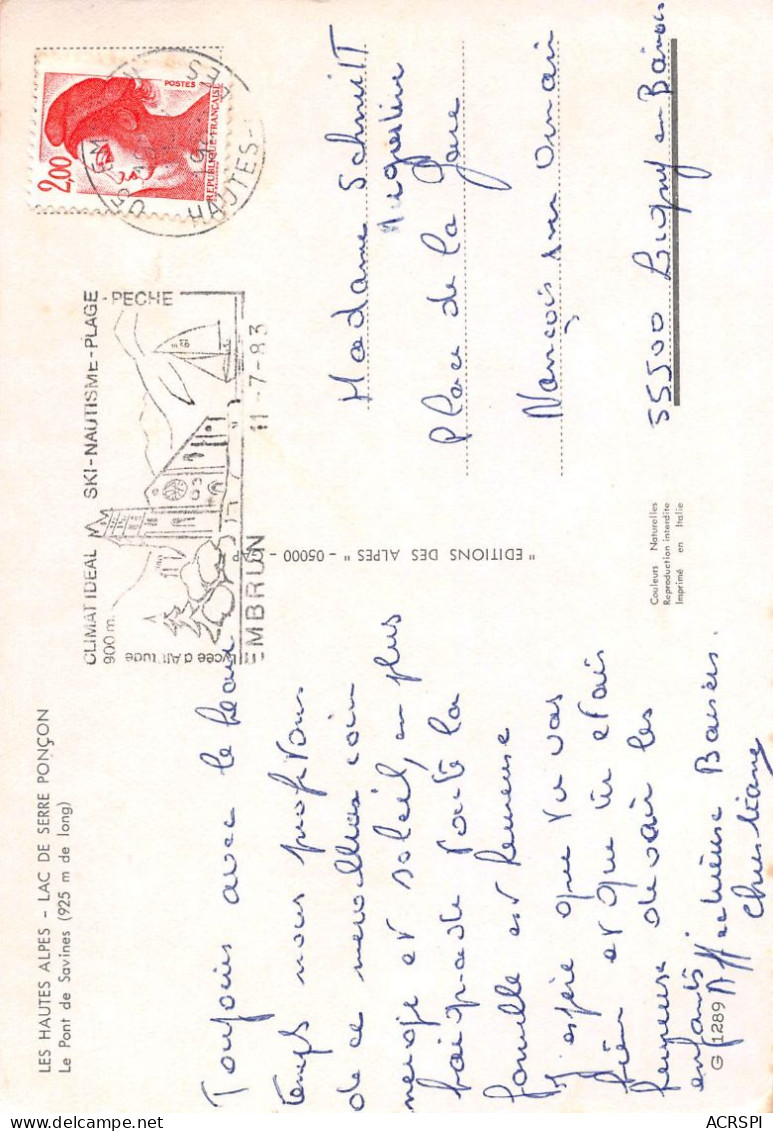 LES HAUTES ALPES - LAC DE SERRE PONÇON
Le Pont de Savines (925 m de long)
CLIMAT IDEAL SKI-NAUTISME-PLAGE-PECHE
900 m.
Lycée d'Altitude
EMBRUN 11-7-83
HAUTES-
POSTES
2,00
REPUBLIQUE FRANÇAISE
Toujours avec le beau
temps nous profitons
de ce merveilleux coin
neige et soleil, en plus
baignade toute la
famille est heureuse
J'espère que tu vas
bien et que tu étais
heureuse de voir les
enfants
Affectueux Baisers.
Christiane
"EDITIONS DES ALPES" - 05000 - GAP
Madame Schmitt
Place de la Gare
Nançois sur Ornain
55500 Ligny en Barrois
Couleurs Naturelles
Reproduction interdite
Imprimé en Italie
G 1289
ACRSPI